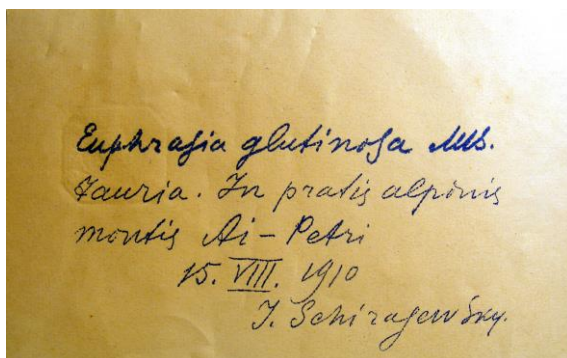 Euphrasia glutinosa MB.
Tauria. In pratis alpinis
montis Ai-Petri
15. VIII. 1910
I. Schirajewsky.